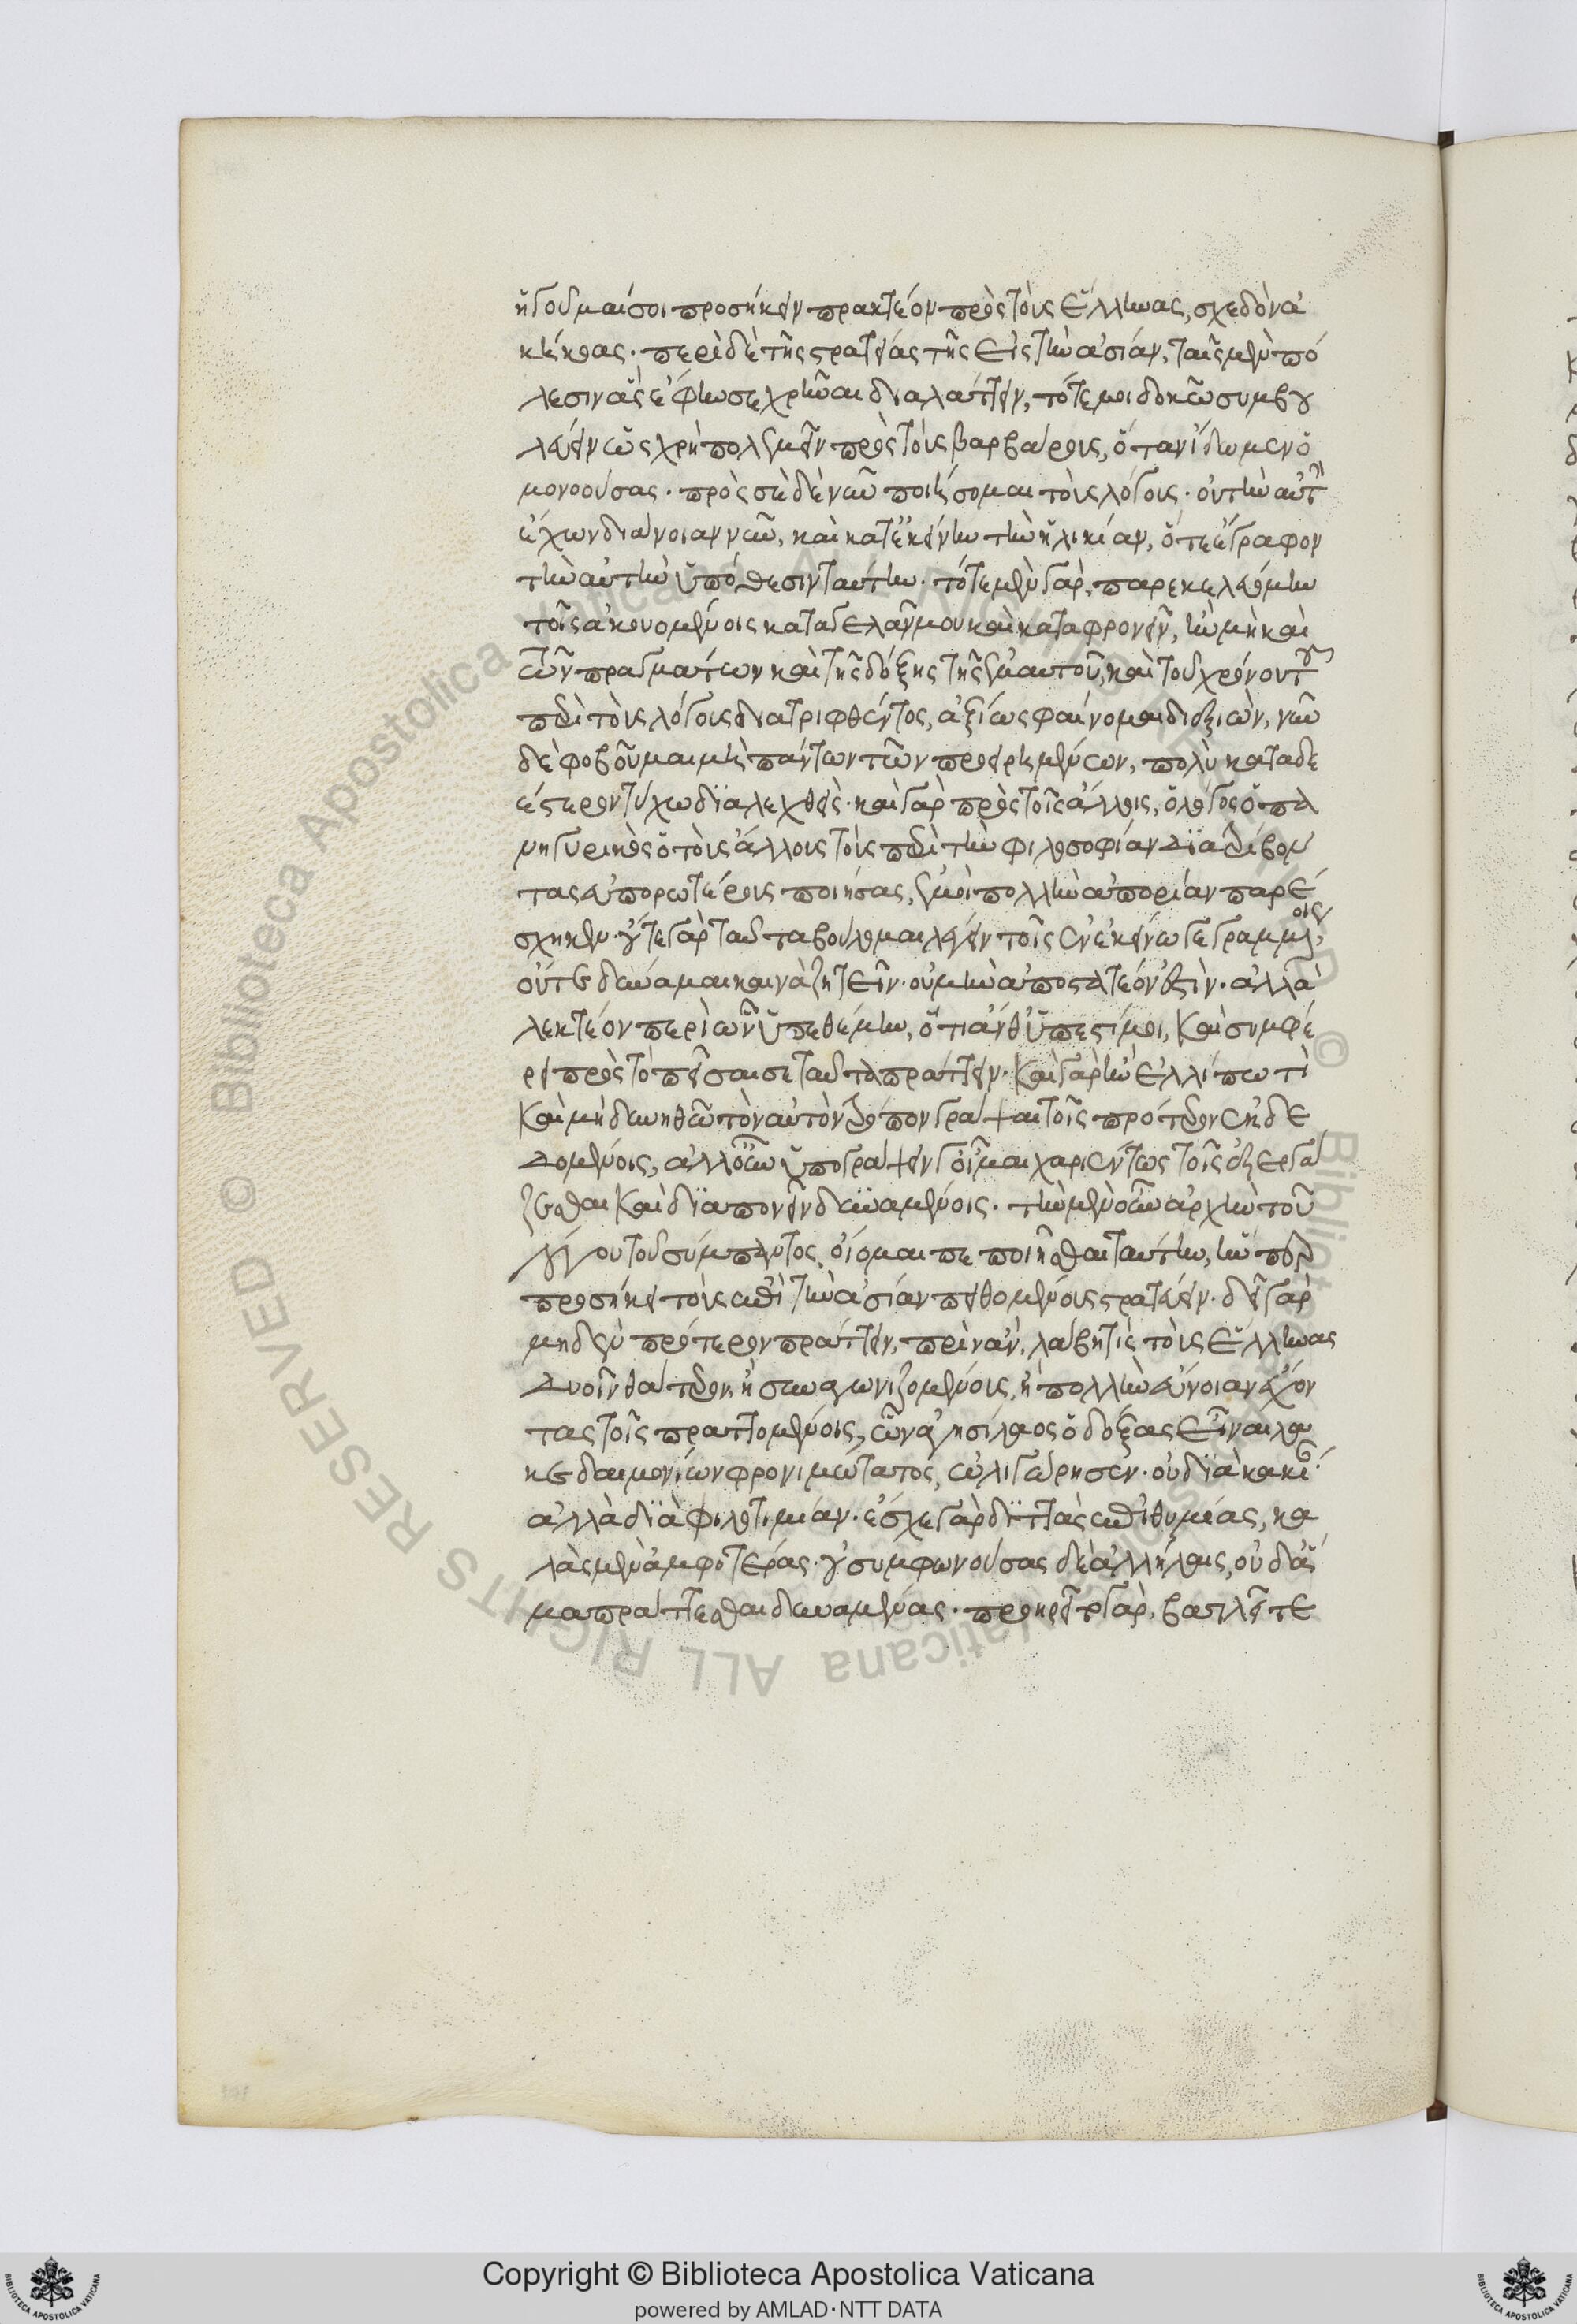 ἡγοῦμαί σοι προσήκειν πρακτέον πρὸς τοὺς ἕλληνας, σχεδὸν ἀ
κήκοας· περὶ δὲ τῆς στρατείας τῆς εἰς τὴν ἀσίαν, ταῖς μὲν πό
λεσιν ἃς ἔφην σε χρῆναι διαλάττειν, τότέ μοι δοκεῖν συμβου
λεύειν ὡς χρὴ πολεμεῖν πρὸς τοὺς βαρβάρους, ὅταν ἴδωμεν ὁ
μονοούσας· πρὸς σὲ δὲ νῦν ποιήσομαι τοὺς λόγους· οὐ τὴν αὐτὴν
ἔχων διάνοιαν νῦν, καὶ κατ' ἐκείνην τὴν ἡλικίαν, ὅτε ἔγραφον
τὴν αὐτὴν ὑπόθεσιν ταύτην· τότε μὲν γὰρ, παρεκελευόμην
τοῖς ἀκουομένοις καταγελᾶν μου καὶ καταφρονεῖν, ἢν μὴ καὶ
τῶν πραγμάτων καὶ τῆς δόξης τῆς ἐμαυτοῦ, καὶ τοῦ χρόνου τοῦ
περὶ τοὺς λόγους διατριφθέντος, ἀξίως φαίνομαι διεξιών, νῦν
δὲ φοβοῦμαι μὴ πάντων τῶν προειρημένων, πολὺ καταδε
έστερον τύχω διαλεχθείς· καὶ γὰρ πρὸς τοῖς ἄλλοις, ὁ λόγος ὁ πα
νηγυρικὸς ὁ τοὺς ἄλλους τοὺς περὶ τὴν φιλοσοφίαν διατρίβον
τας εὐπορωτέρους ποιήσας, ἐμοὶ πολλὴν ἀπορίαν παρέ
σχηκεν· οὔτε γὰρ ταὐτὰ βούλομαι λέγειν τοῖς ἐν ἐκείνω γεγραμμένοις,
οὔτε δύναμαι καινὰ ζητεῖν· οὐ μὴν ἀποστατέον ἐστὶν· ἀλλὰ
λεκτέον περὶ ὧν ὑπεθέμην, ὅτι ἂν θ' ὑπέστι μοι, καὶ συμφέ
ρει πρὸς τὸ πεῖσαί σε ταῦτα πράττειν· καὶ γὰρ ἢν ἐλλίπω τι
καὶ μὴ δυνηθῶ τὸν αὐτὸν τρόπον γράψαι τοῖς πρότερον ἐκδε
δομένοις, ἀλλ' οὖν ὑπογράψειν γ' οἶμαι χαριέντως τοῖς ἐξεργά
ζεσθαι καὶ διαπονεῖν δυναμένοις· τὴν μὲν οὖν ἀρχὴν τοῦ
λόγου τοῦ σύμπαντος, οἴομαι πεποιῆσθαι ταύτην, ἥνπερ
προσήκει τοὺς ἐπὶ τὴν ἀσίαν πειθομένους στρατεύειν· δεῖ γὰρ
μηδὲν πρότερον πράττειν, πρὶν ἂν, λάβη τις τοὺς ἕλληνας
δυοῖν θάτερον, ἢ συναγωνιζομένους, ἢ πολλὴν εὔνοιαν ἔχον
τας τοῖς πραττομένοις, ὧν ἀγησίλαος ὁ δόξας εἶναι λα
κεδαιμονίων φρονιμώτατος, ὠλιγώρησεν· οὐ διὰ κακί·
ἀλλὰ διὰ φιλοτιμίαν· ἔσχε γὰρ διττὰς ἐπιθυμίας, κα
λὰς μὲν ἀμφοτέρας· οὐ συμφωνούσας δὲ ἀλλήλαις, οὐδ' ἅ
μα πράττεσθαι δυναμένας· προηρεῖτο γὰρ, βασιλεῖ τε